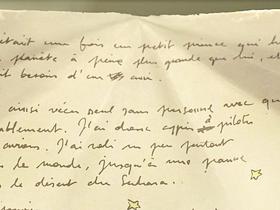 était une fois un petit prince qui h
planète à peine plus grande que lui, et
besoin d'un ami.
ainsi vécu seul sans personne avec qu
ablement. J'ai donc appris à piloter
avions. J'ai volé un peu partout
le monde, jusqu'à une panne
le désert du Sahara..